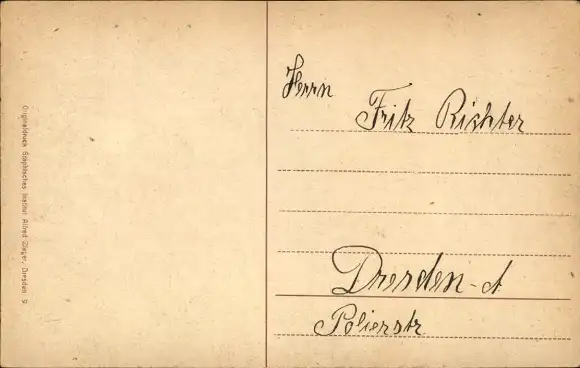 Originaldruck Graphisches Institut Alfred Zieger, Dresden 9.
Herrn
Fritz Richter
Dresden-A
Polierstr